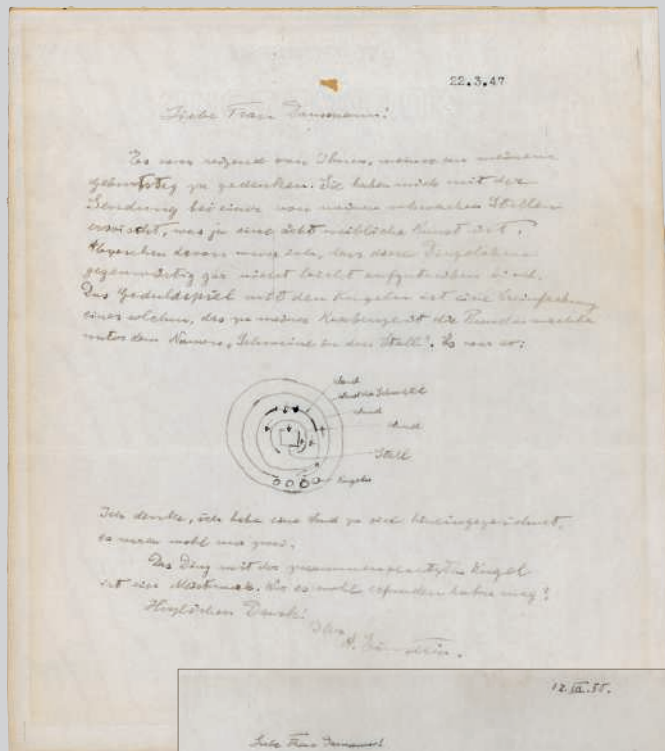 22.3.47
Liebe Frau Dannemann!
Es war reizend von Ihnen, an meinen
Geburtstag zu gedenken. Sie haben mich mit der
Sendung bei einer von meinen schwachen Stellen
erwischt, was ja eine echt weibliche Kunst ist.
Abgesehen davon muss ich, dass diese
gegenwärtig gar nicht leicht aufzutreiben sind.
Das Geduldspiel mit den Kugeln ist eine Vereinfachung
eines solchen, das zu meiner Knabenzeit die Runde machte
unter dem Namen „Schweine in den Stall". Es war so:
Wand
Wand
Wand
Stall
Kugeln
Ich denke, ich habe eine Wand zu viel hineingezeichnet,
es waren wohl nur zwei.
Das Ding mit der zusammengesetzten Kugel
ist eine Wer es wohl erfunden haben mag?
Herzlichen Dank!
Ihr
A. Einstein.
12.III.55.
Liebe Frau